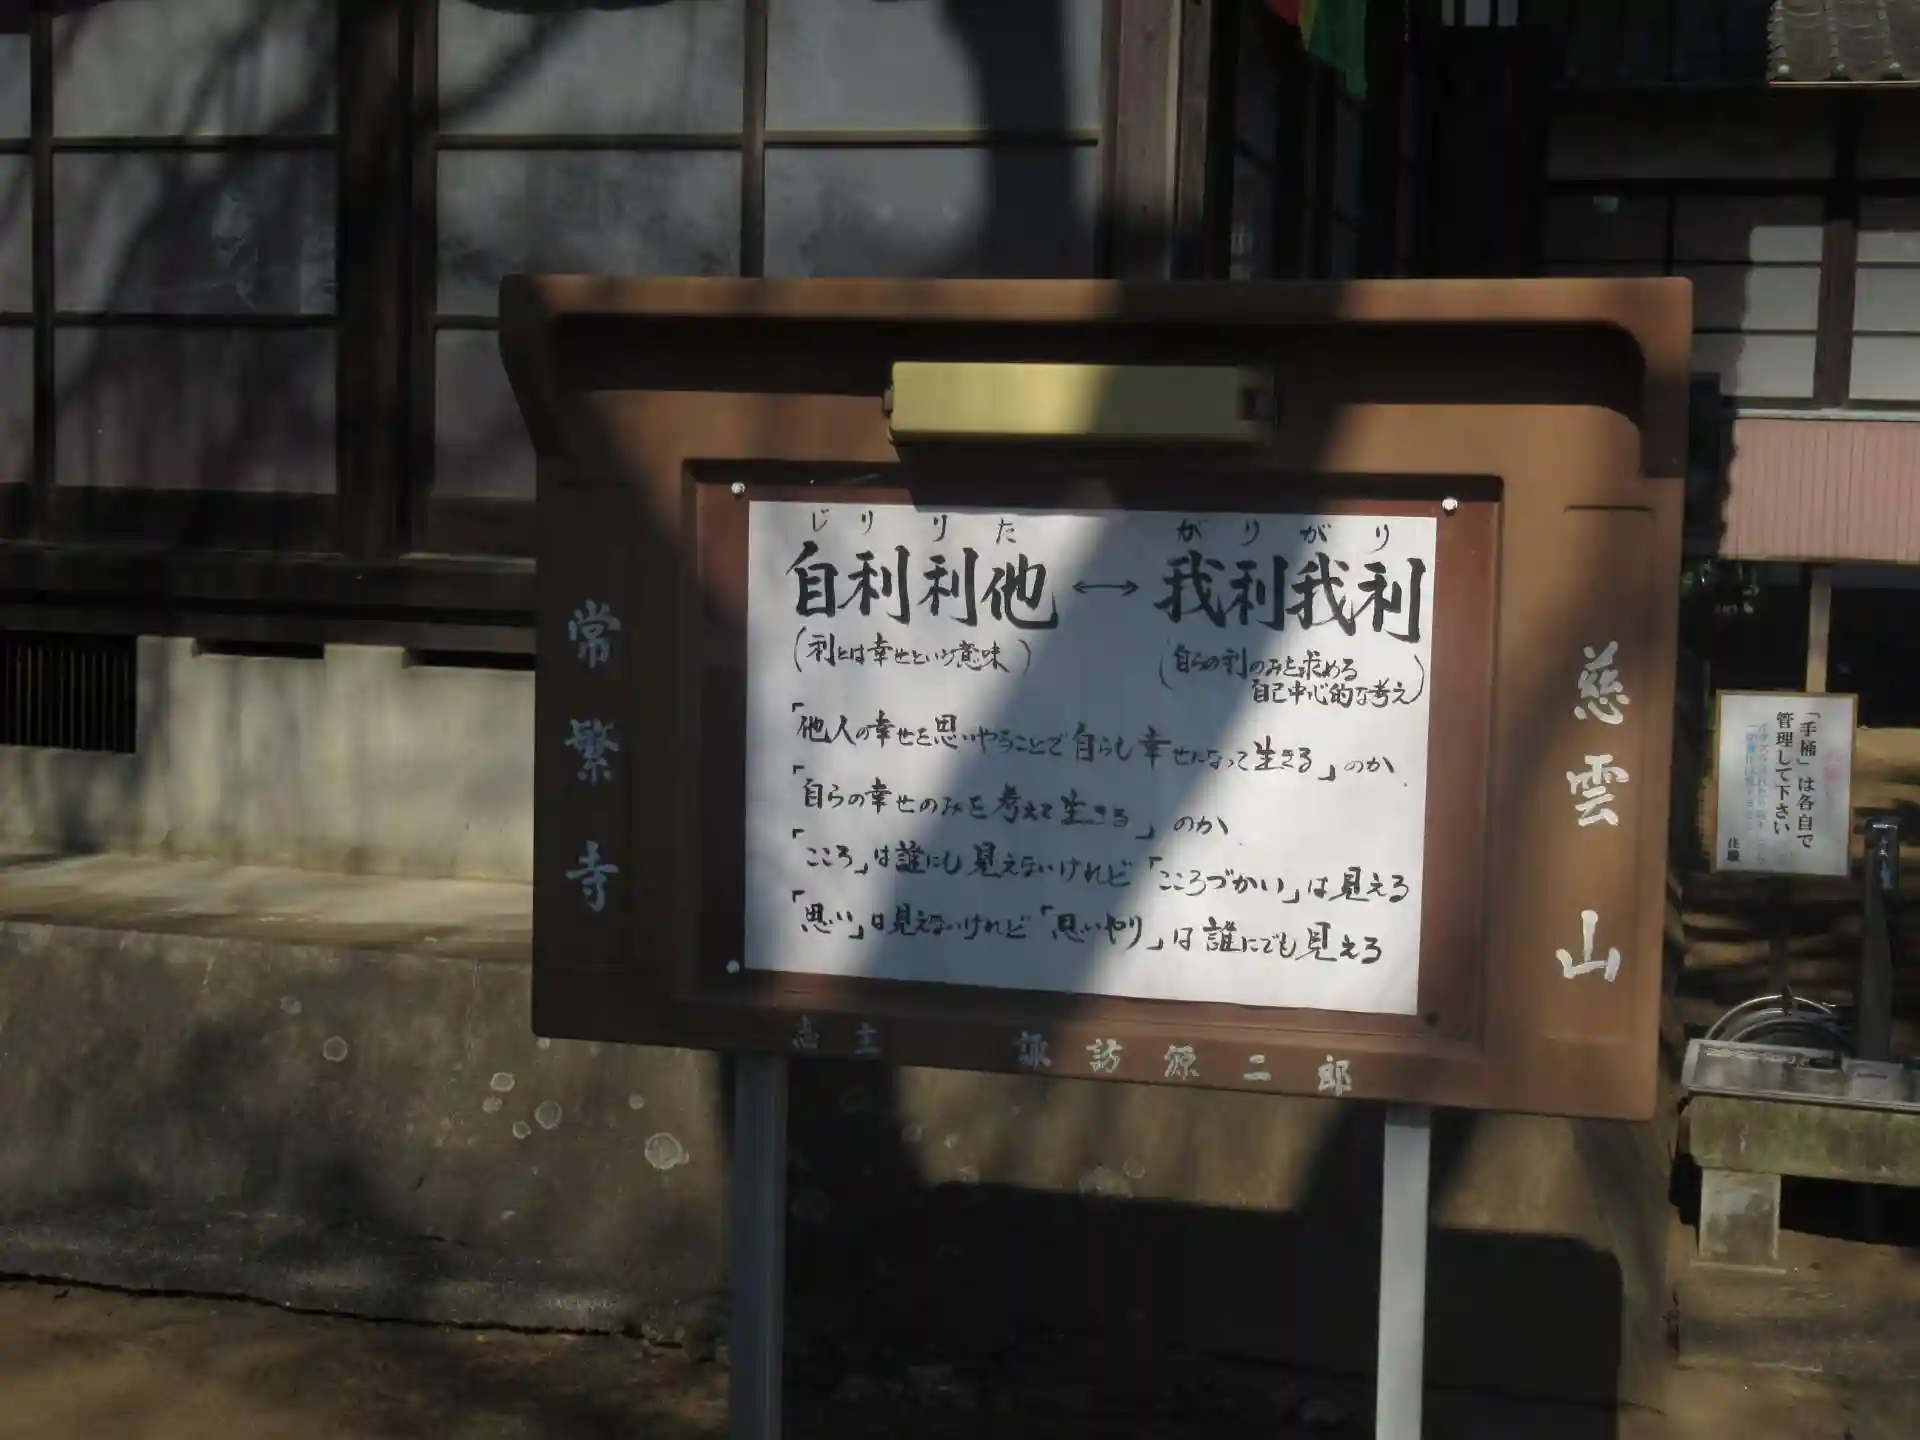 じりりた がりがり
自利利他 ↔ 我利我利
(利とは幸せという意味)
(自らの利のみを求める
自己中心的な考え)
「他人の幸せを思いやることで自らも幸せになって生きる」のか
「自らの幸せのみを考えて生きる」のか
「こころ」は誰にも見えないけれど「こころづかい」は見える
「思い」は見えないけれど「思いやり」は誰にでも見える
慈雲山
常繁寺
志主 諏訪源二郎
「手桶」は各自で
管理して下さい
住職